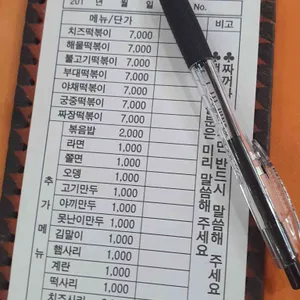 201 년 월 일 No.
메뉴/단가
비고
치즈떡볶이 7,000
해물떡볶이 7,000
불고기떡볶이 7,000
부대떡볶이 7,000
야채떡볶이 7,000
궁중떡볶이 7,000
짜장떡볶이 7,000
추가메뉴
볶음밥 2,000
라면 1,000
쫄면 1,000
오뎅 1,000
고기만두 1,000
야끼만두 1,000
못난이만두 1,000
김말이 1,000
햄사리 1,000
계란 1,000
떡사리 1,000
치즈사리
♣짜
반드시 말씀해 주세요
분은 미리 말씀해 주세요